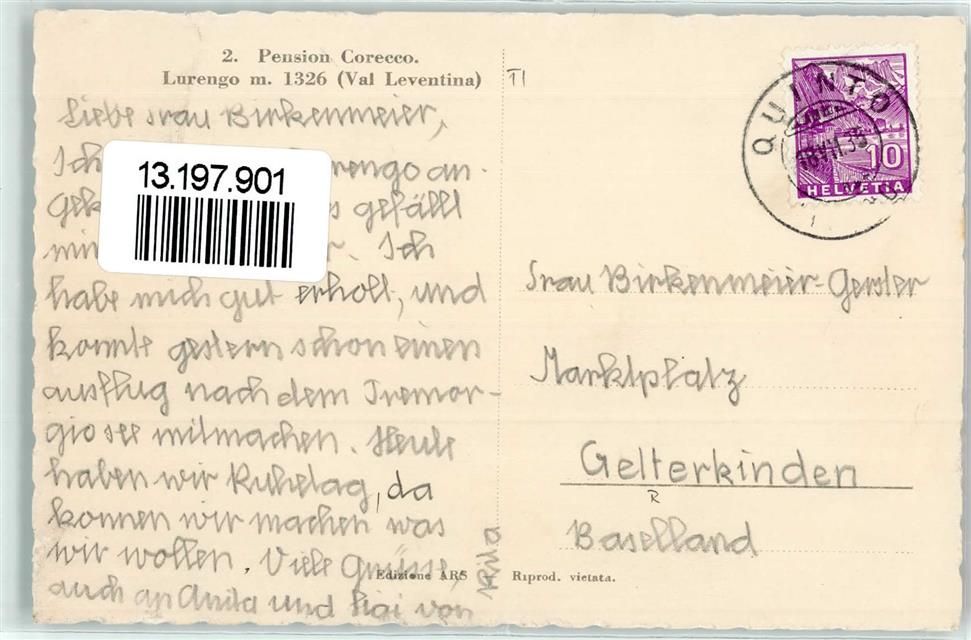 2. Pension Corecco.
Lurengo m. 1326 (Val Leventina)
Liebe Frau Birkenmeier,
Ich rengo an-
gek s gefällt
mir r. Ich
habe mich gut erholt, und
konnte gestern schon einen
ausflug nach dem Tremor-
gio see mitmachen. Heute
haben wir Ruhetag, da
können wir machen was
wir wollen. Viele Grüsse,
auch an Anita und von
13.197.901
QUINTO
10
HELVETIA
Frau Birkenmeier-Gerster
Marktplatz
Gelterkinden
Baselland
Edizione ARS Riprod. vietata.